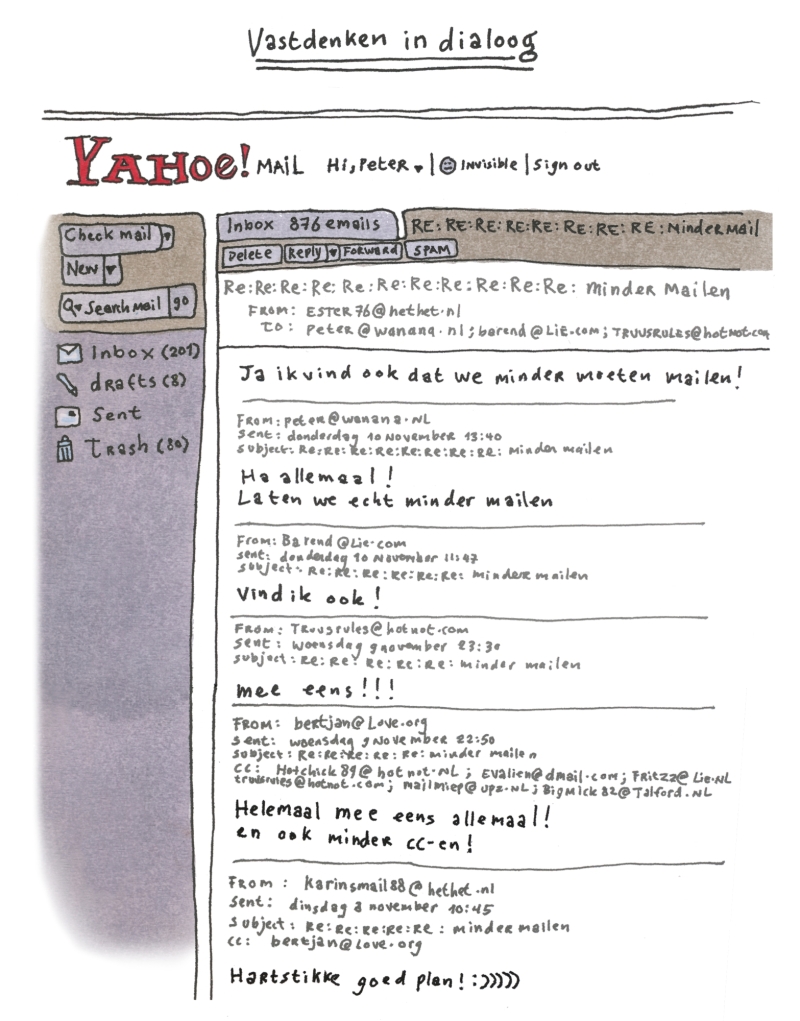 Vastdenken in dialoog
YAHOE! MAIL Hi, Peter | Invisible | Sign out
Check mail
New
Search Mail go
Inbox (201)
drafts (8)
Sent
Trash (80)
Inbox 876 emails
RE: RE: RE: RE: RE: RE: RE: RE: Minder Mail
Delete Reply Forward SPAM
Re: Re: Re: Re: Re: Re: Re: Re: Re: Re: minder Mailen
From: ESTER76@hethet.nl
to: peter@wanana.nl; barend@Lie.com; TRUUSRULES@hotnot.com
Ja ik vind ook dat we minder moeten mailen!
From: peter@wanana.NL
Sent: donderdag 10 November 13:40
subject: Re: Re: Re: Re: Re: Re: Re: Re: minder mailen
Ha allemaal!
Laten we echt minder mailen
From: Barend@Lie.com
sent: donderdag 10 November 11:47
subject: Re: Re: Re: Re: Re: Re: minder mailen
Vind ik ook!
From: Truusrules@hotnot.com
sent: woensdag 9 november 23:30
subject: Re: Re: Re: Re: Re: minder mailen
mee eens!!!
From: bertjan@Love.org
Sent: woensdag 9 November 22:50
subject: Re: Re: Re: Re: Re: minder mailen
CC: Hotchick89@hotnot.NL; Evalien@dmail.com; Fritzz@Lie.NL
truusrules@hotnot.com; mailmiep@upz.NL; BigMick82@Talford.NL
Helemaal mee eens allemaal!
en ook minder cc-en!
From: karinsmail88@hethet.nl
Sent: dinsdag 8 november 10:45
Subject: Re: Re: Re: Re: Re: minder mailen
CC: bertjan@Love.org
Hartstikke goed plan! :)))))